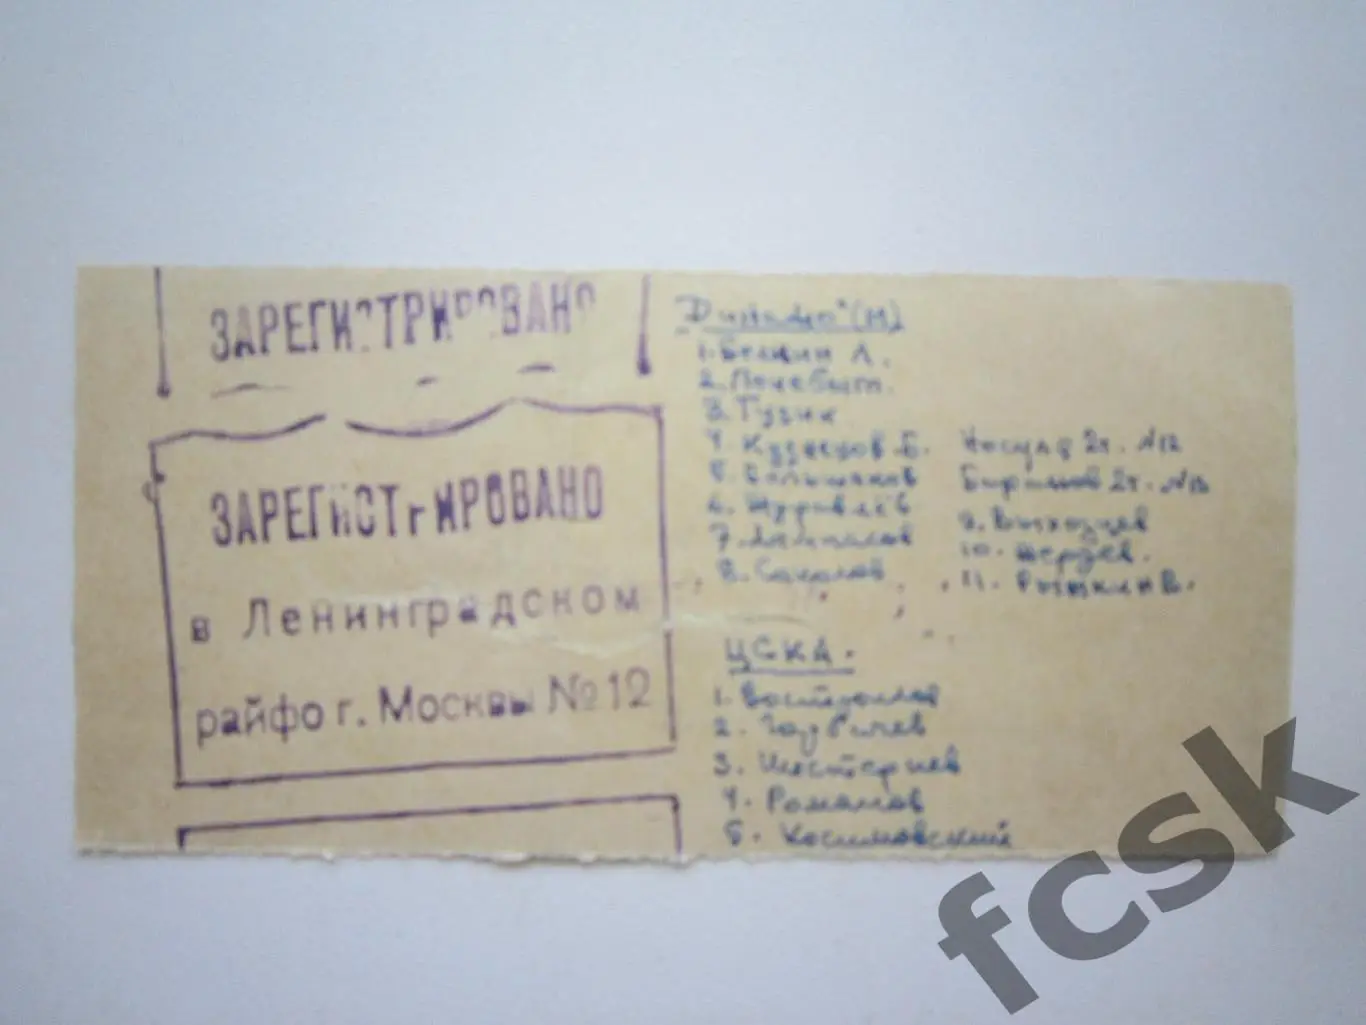 ЗАРЕГИСТРИРОВАНО
ЗАРЕГИСТРИРОВАНО
в Ленинградском
райфо г. Москвы №12
"Динамо" (М)
1. Белкин Л.
2.
3. Гузик
4. Кузнецов Б.
5. Большаков
6. Журавлёв
7.
8. Соколов
Носуля 2т. №12
2т. №13
9. Выходцев
10.
11. Рыжкин В.
ЦСКА.
1. Востроилов
2.
3. Шестернев
4. Романов
5. Косимовский
fcsk